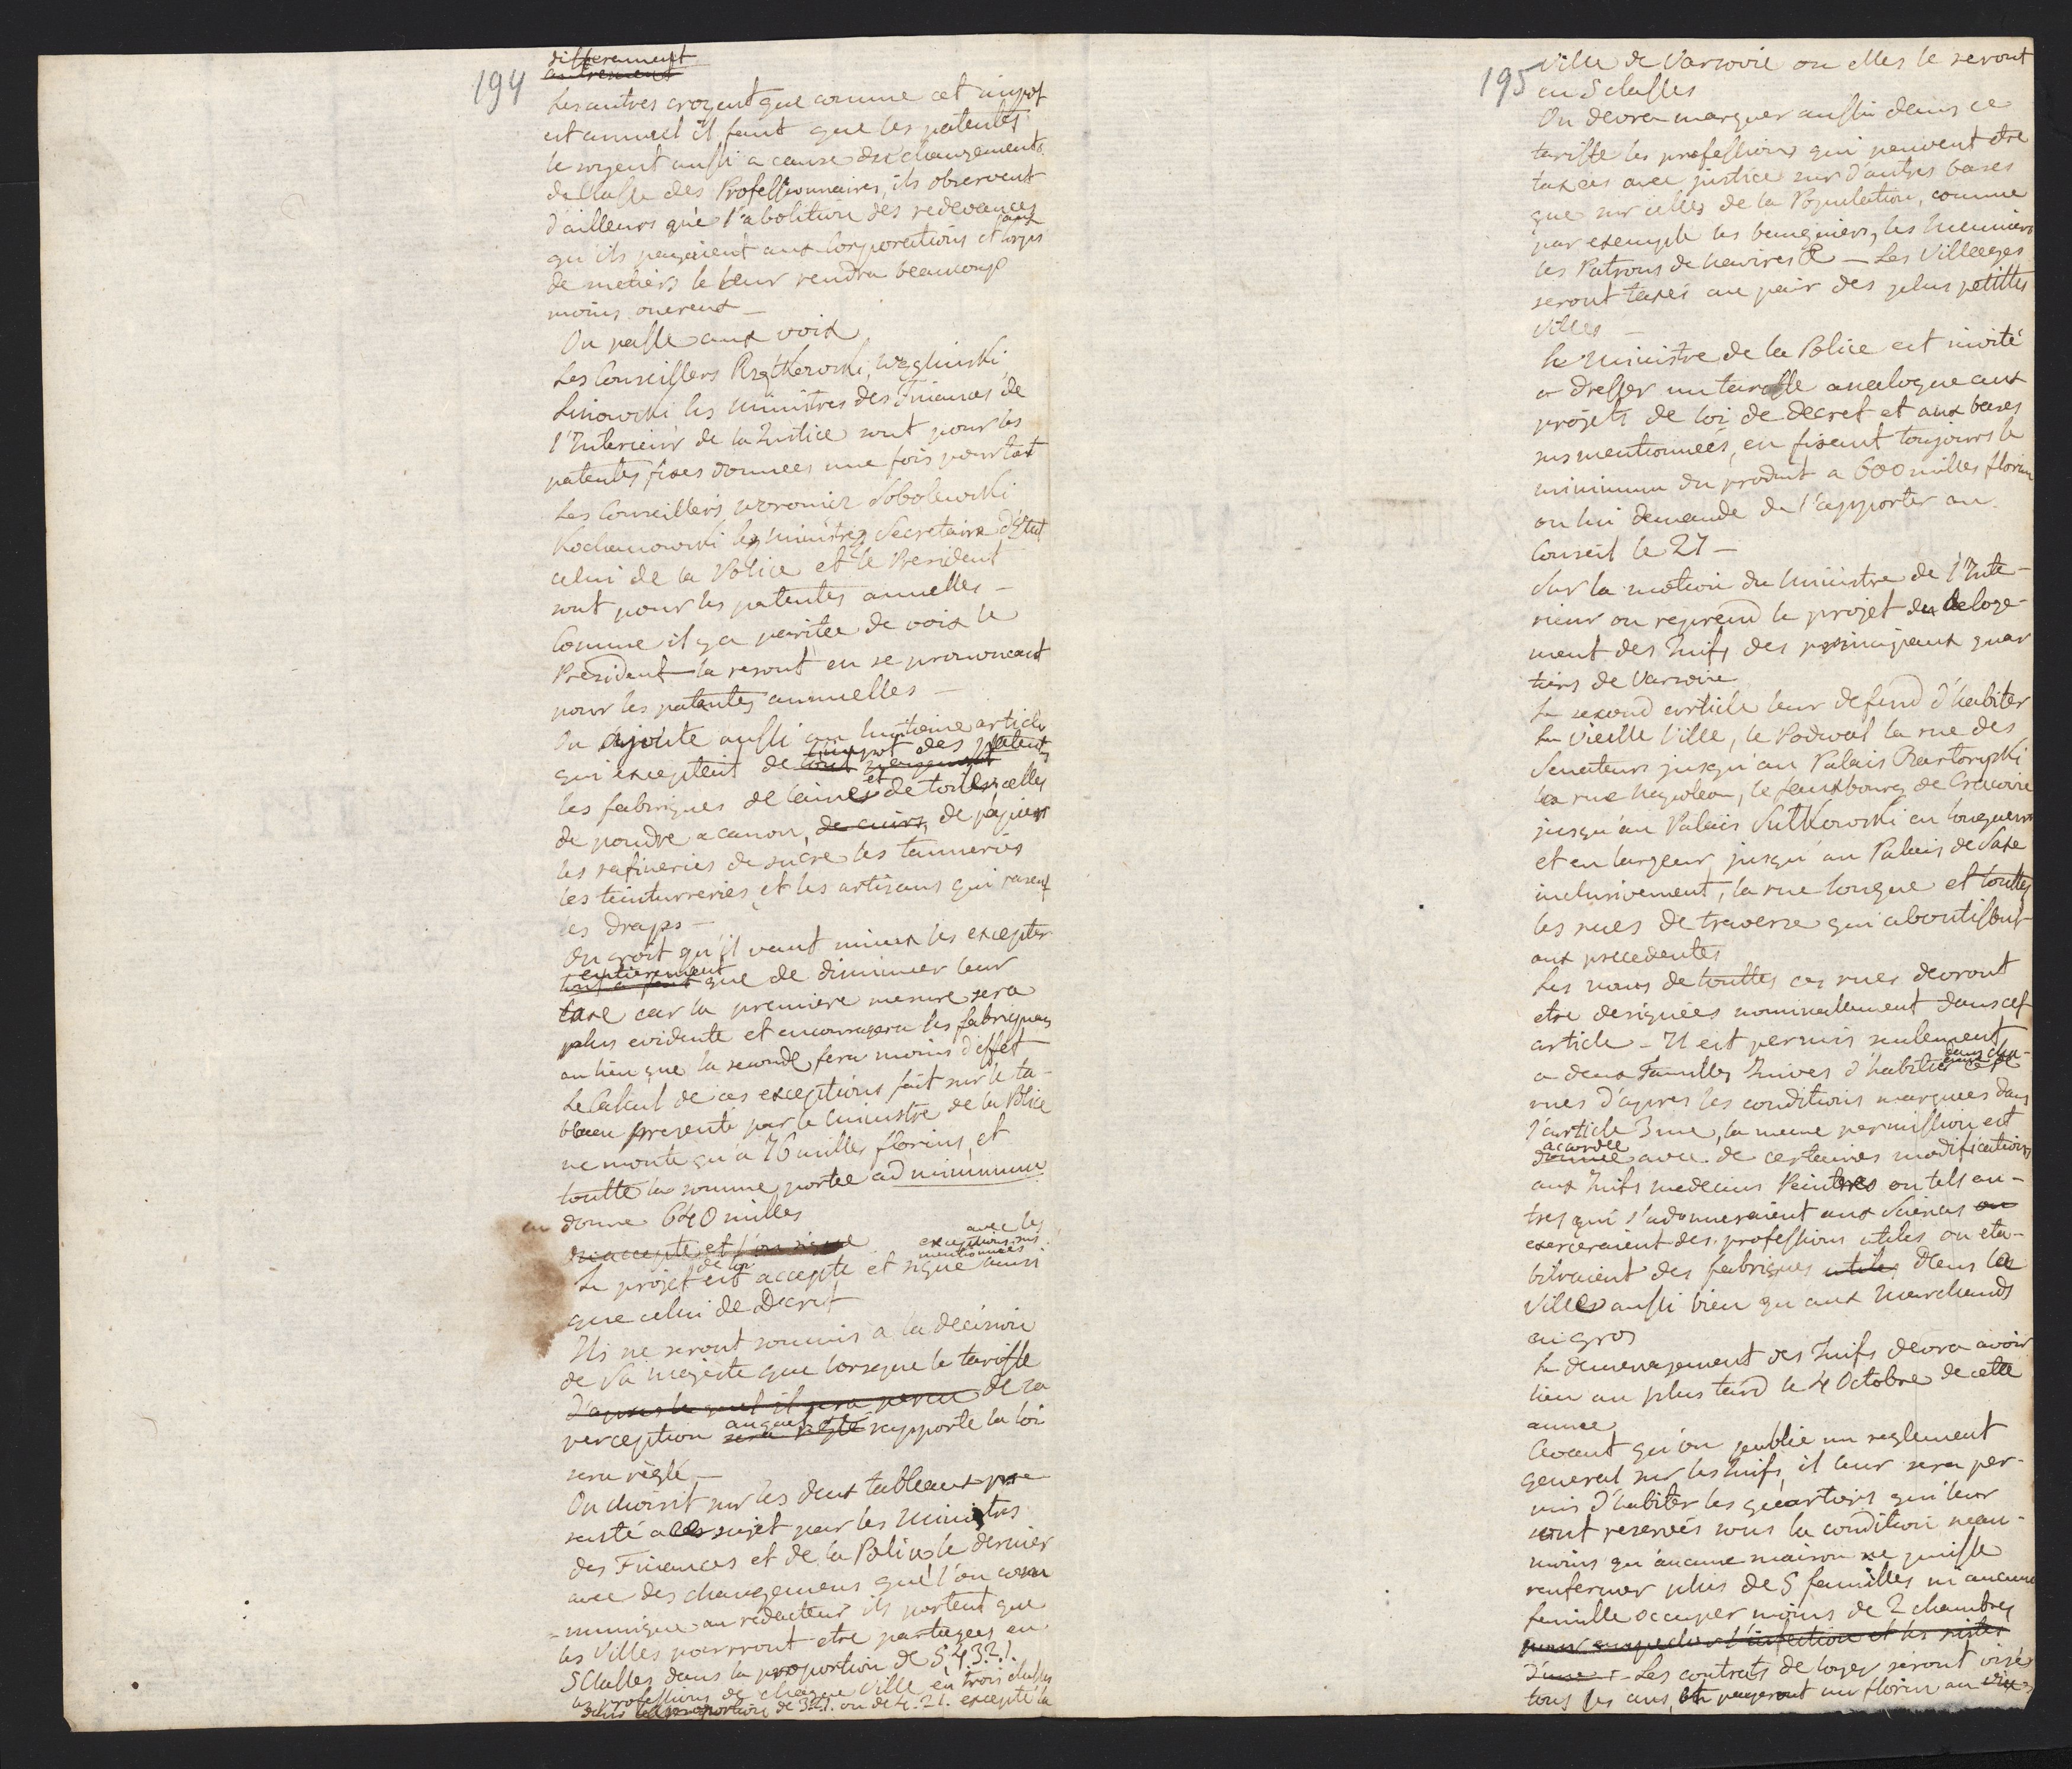 194
differement
autrement
Les autres croyent que comme cet impot
est annuel il faut que les patentes
le soyent aussi a cause du changement
de classe des Professionnaires, ils observent
d'ailleurs que l'abolition des redevances
qu'ils payaient aux Corporations et aux corps
de metiers le leur rendra beaucoup
moins onereux —
On passe aux voix
Les Conseillers Rzętkowski, Węgliński,
Linowski les Ministres des Finances de
l'Interieur de la Justice sont pour les
patentes fixes données une fois pour tout
Les Conseillers Woronicz Sobolewski
Kochanowski les Ministres Secretaire d'Etat
celui de la Police et le President
sont pour les patentes annuelles —
Comme il y a paritée de voix le
President la resout en se prononcant
pour les patentes annuelles —
On ajoute aussi un huitieme article
qui exceptent de l'impot des patentes
les fabriques de laines et de toiles, celles
de poudre a canon, de cuirs, de papiers
les rafineries de sucre les tanneries
les teinturreries, et les artisans qui rasent
les draps —
On croit qu'il vaut mieux les excepter
entierement
tout a fait que de diminuer leur
taxe car la premiere mesure sera
plus evidente et encouragera les fabriques
au lieu que la seconde fera moins d'effet
Le Calcul de ces exceptions fait sur le ta-
bleau presenté par le Ministre de la Police
ne monte qu'a 76 milles florins, et
toutte la somme portée ad minimum
en donne 640 milles
avec les
exceptions sus
mentionnées
de loi
Le projet est accepté et signé ainsi
que celui de Decret
Ils ne seront soumis a la decision
de Sa Majesté que lorsque le tariffe
d'apres le quel il sera percu de sa
perception auquel se rapporte la loi
sera règlé —
On choisit sur les deux tableaux pre
senté a ce sujet par les Ministres
des Finances et de la Police le dernier
avec des changemens que l'on com
-munique au rédacteur ils portent que
les Villes pourront etre partagées en
5 Classes dans la proportion de 5.4.3.2.1.
les professions de chaque Ville en trois classes
dans la proportion de 3.2.1. ou de 4.2.1. excepté la
195
Ville de Varsovie ou elles le seront
en 5 classes
On devra marquer aussi dans ce
tariffe les professions qui peuvent etre
taxées avec justice sur d'autres bases
que sur celles de la Population, comme
par exemple les banquiers, les Meuniers
les Patrons de navires & — Les Villages
seront taxés au pair des plus petittes
Villes —
Le Ministre de la Police est invité
a dresser un tariffe analogue aux
projets de loi de decret et aux bases
susmentionnées, en fixant toujours le
minimum du produit a 600 milles florins
on lui demande de l'apporter au
Conseil le 27 —
Sur la motion du Ministre de l'Inte-
rieur on reprend le projet du deloge-
ment des Juifs des principaux quar
tiers de Varsovie
Le second article leur defend d'habiter
La Vieille Ville, le Podwal la rue des
Senateurs jusqu'au Palais Czartoryski
la rue Napoleon, le fauxbourg de Cracovie
jusqu'au Palais Sulkowski en longueur
et en largeur jusqu'au Palais de Saxe
inclusivement, la rue longue et touttes
les rues de traverse qui aboutissent
aux precedentes
Les noms de touttes ces rues devront
etre designées nominallement dans cet
article — Il est permis seulement
a deux Familles Juives d'habiter dans ces
rues d'apres les conditions marquées dans
l'article 3me, la meme permission est
accordée
donnée avec de certaines modifications
aux Juifs medecins Peintres ou tels au-
tres qui s'adonneraient aux Sciences ou
exerceraient des professions utiles ou eta-
bliraient des fabriques utiles dans la
Ville aussi bien qu'aux Marchands
en gros
Le demenagement des Juifs devra avoir
lieu au plus tard le 4 Octobre de cette
année
Avant qu'on publie un reglement
general sur les Juifs, il leur sera per-
mis d'habiter les quartiers qui leur
sont reservés sous la condition nean-
moins qu'aucune maison ne puisse
renfermer plus de 5 familles ni aucune
famille occuper moins de 2 chambres
pour empecher l'infection et les suites
d'une — Les contrats de loyer seront visés
tous les ans, et payeront un florin au